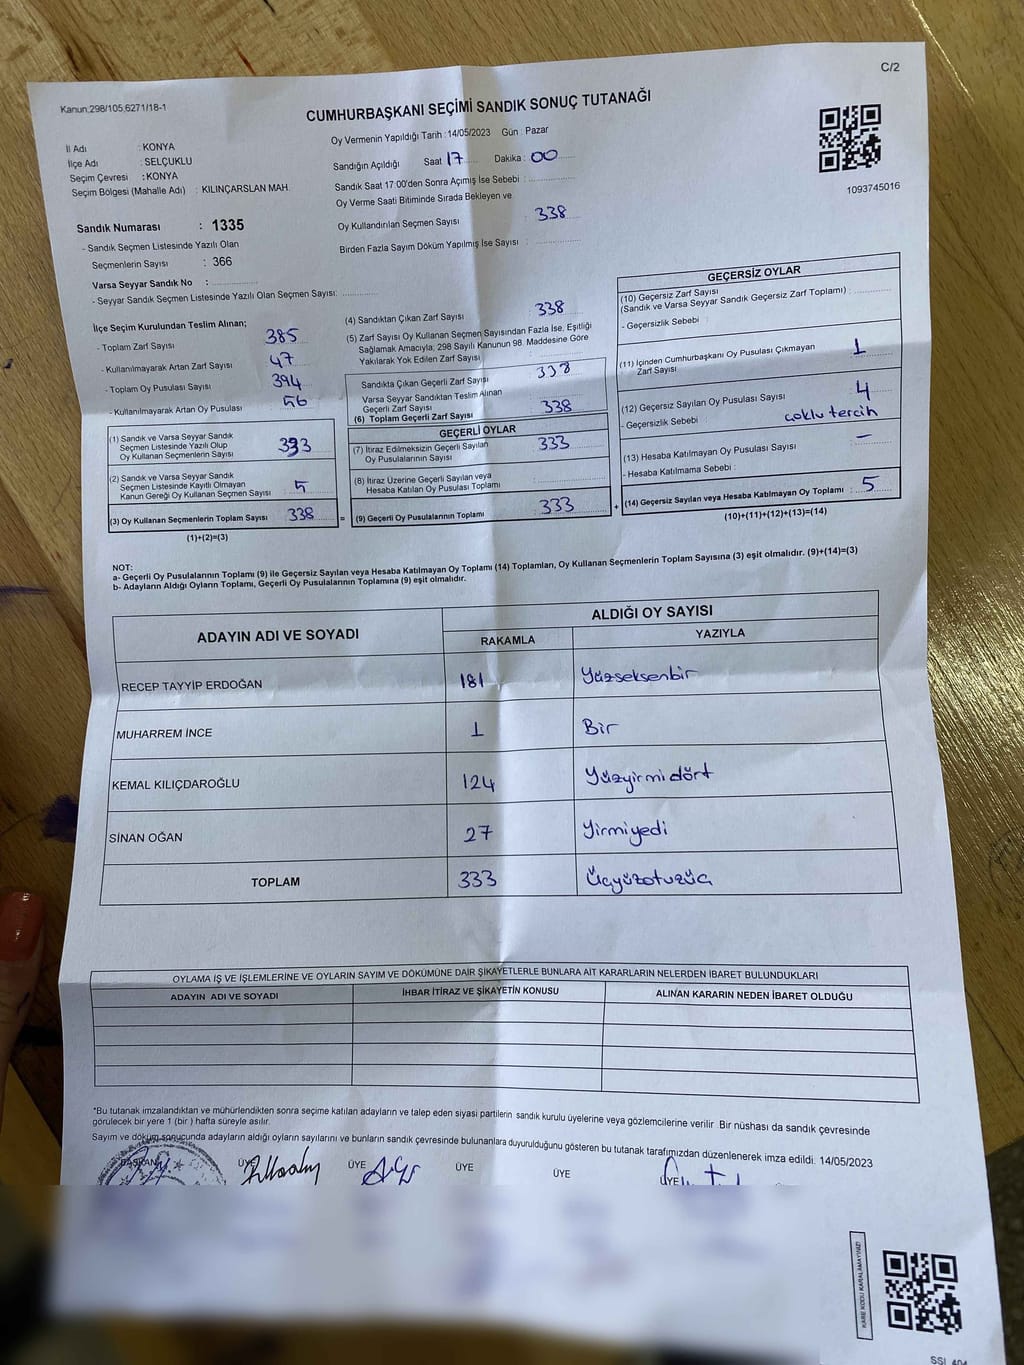 C/2
Kanun:298/105,6271/18-1
CUMHURBAŞKANI SEÇİMİ SANDIK SONUÇ TUTANAĞI
1093745016
İl Adı : KONYA
İlçe Adı : SELÇUKLU
Seçim Çevresi : KONYA
Seçim Bölgesi (Mahalle Adı) : KILINÇARSLAN MAH.
Sandık Numarası : 1335
- Sandık Seçmen Listesinde Yazılı Olan
Seçmenlerin Sayısı : 366
Varsa Seyyar Sandık No :
- Seyyar Sandık Seçmen Listesinde Yazılı Olan Seçmen Sayısı:
Oy Vermenin Yapıldığı Tarih : 14/05/2023 Gün : Pazar
Sandığın Açıldığı Saat 17 Dakika : 00
Sandık Saat 17:00'den Sonra Açımış İse Sebebi :
Oy Verme Saati Bitiminde Sırada Bekleyen ve
Oy Kullandırılan Seçmen Sayısı : 338
Birden Fazla Sayım Döküm Yapılmış İse Sayısı :
İlçe Seçim Kurulundan Teslim Alınan;
- Toplam Zarf Sayısı 385
- Kullanılmayarak Artan Zarf Sayısı 47
- Toplam Oy Pusulası Sayısı 394
- Kullanılmayarak Artan Oy Pusulası 56
(1) Sandık ve Varsa Seyyar Sandık
Seçmen Listesinde Yazılı Olup
Oy Kullanan Seçmenlerin Sayısı 333
(2) Sandık ve Varsa Seyyar Sandık
Seçmen Listesinde Kayıtlı Olmayan
Kanun Gereği Oy Kullanan Seçmen Sayısı 5
(3) Oy Kullanan Seçmenlerin Toplam Sayısı 338 =
(1)+(2)=(3)
(4) Sandıktan Çıkan Zarf Sayısı 338
(5) Zarf Sayısı Oy Kullanan Seçmen Sayısından Fazla İse, Eşitliği
Sağlamak Amacıyla; 298 Sayılı Kanunun 98. Maddesine Göre
Yakılarak Yok Edilen Zarf Sayısı
Sandıkta Çıkan Geçerli Zarf Sayısı 338
Varsa Seyyar Sandıktan Teslim Alınan
Geçerli Zarf Sayısı
(6) Toplam Geçerli Zarf Sayısı 338
GEÇERLİ OYLAR
(7) İtiraz Edilmeksizin Geçerli Sayılan
Oy Pusulalarının Sayısı 333
(8) İtiraz Üzerine Geçerli Sayılan veya
Hesaba Katılan Oy Pusulası Toplamı
(9) Geçerli Oy Pusulalarının Toplamı 333 +
GEÇERSİZ OYLAR
(10) Geçersiz Zarf Sayısı
(Sandık ve Varsa Seyyar Sandık Geçersiz Zarf Toplamı) :
- Geçersizlik Sebebi :
(11) İçinden Cumhurbaşkanı Oy Pusulası Çıkmayan
Zarf Sayısı : 1
(12) Geçersiz Sayılan Oy Pusulası Sayısı : 4
- Geçersizlik Sebebi : çoklu tercih
(13) Hesaba Katılmayan Oy Pusulası Sayısı : –
- Hesaba Katılmama Sebebi :
(14) Geçersiz Sayılan veya Hesaba Katılmayan Oy Toplamı : 5
(10)+(11)+(12)+(13)=(14)
NOT:
a- Geçerli Oy Pusulalarının Toplamı (9) ile Geçersiz Sayılan veya Hesaba Katılmayan Oy Toplamı (14) Toplamları, Oy Kullanan Seçmenlerin Toplam Sayısına (3) eşit olmalıdır. (9)+(14)=(3)
b- Adayların Aldığı Oyların Toplamı, Geçerli Oy Pusulalarının Toplamına (9) eşit olmalıdır.
ADAYIN ADI VE SOYADI ALDIĞI OY SAYISI
RAKAMLA YAZIYLA
RECEP TAYYİP ERDOĞAN 181 Yüzseksenbir
MUHARREM İNCE 1 Bir
KEMAL KILIÇDAROĞLU 124 Yüzyirmidört
SİNAN OĞAN 27 Yirmiyedi
TOPLAM 333 Üçyüzotuzüç
OYLAMA İŞ VE İŞLEMLERİNE VE OYLARIN SAYIM VE DÖKÜMÜNE DAİR ŞİKAYETLERLE BUNLARA AİT KARARLARIN NELERDEN İBARET BULUNDUKLARI
ADAYIN ADI VE SOYADI İHBAR İTİRAZ VE ŞİKAYETİN KONUSU ALINAN KARARIN NEDEN İBARET OLDUĞU
*Bu tutanak imzalandıktan ve mühürlendikten sonra seçime katılan adayların ve talep eden siyasi partilerin sandık kurulu üyelerine veya gözlemcilerine verilir. Bir nüshası da sandık çevresinde
görülecek bir yere 1 (bir ) hafta süreyle asılır.
Sayım ve döküm sonucunda adayların aldığı oyların sayılarını ve bunların sandık çevresinde bulunanlara duyurulduğunu gösteren bu tutanak tarafımızdan düzenlenerek imza edildi. 14/05/2023
BAŞKAN ÜYE ÜYE ÜYE ÜYE ÜYE
KARE KODU KARALAMAYINIZ!